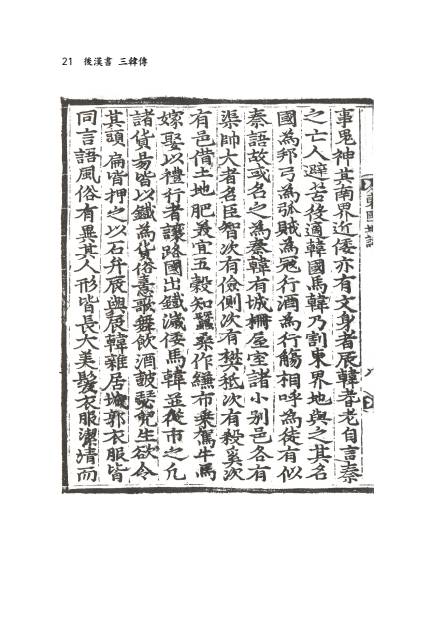 21 後漢書 三韓傳
事鬼神其南界近倭亦有文身者辰韓耆老自言秦
之亡人避苦役適韓國馬韓乃割東界地與之其名
國為邦弓為弧賊為冦行酒為行觴相呼為徒有似
秦語故或名之為秦韓有城柵屋室諸小別邑各有
渠帥大者名臣智次有儉側次有樊秖次有殺奚次
有邑借土地肥美宜五穀知蠶桑作縑布乘駕牛馬
嫁娶以禮行者讓路國出鐵濊倭馬韓並從市之凡
諸貨易皆以鐵為貨俗憙歌舞飲酒皷瑟兒生欲令
其頭扁皆押之以石弁辰與辰韓雜居城郭衣服皆
同言語風俗有異其人形皆長大美髮衣服潔清而